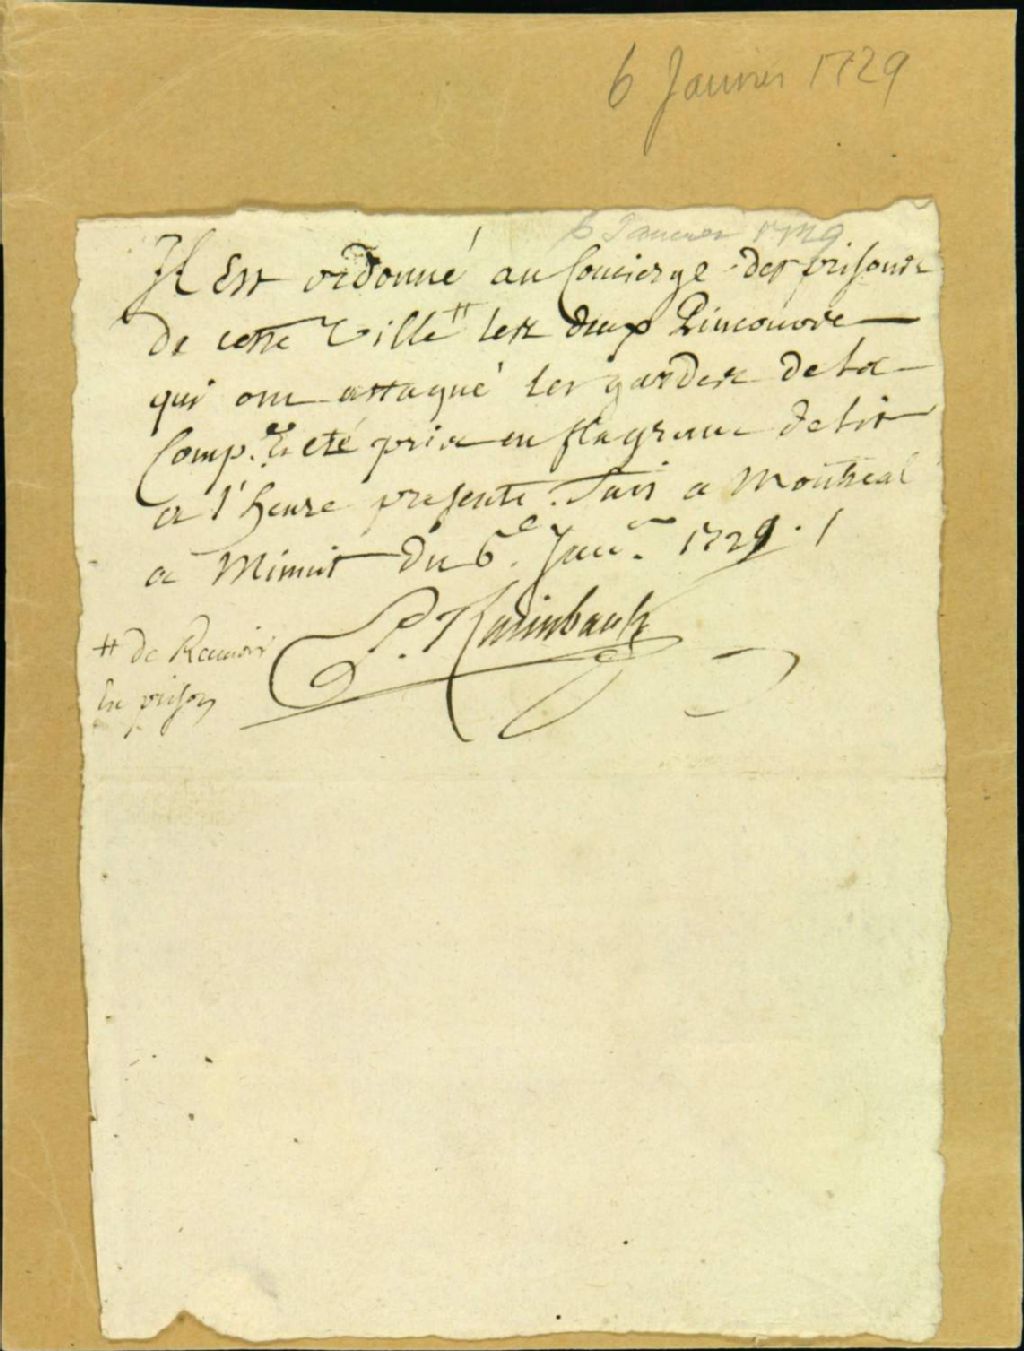 6 Janvier 1729
6 Janvier 1729
Il Est ordonné au Concierge des prisons
de cette Ville # les deux
qui ont attaqué les gardes de la
Comp.e et été pris en flagrant delit
a l'heure presente. Fait a Montreal
a Minuit du 6e. Janv. 1729. /
P. Raimbault
# de Recevoir
En prison